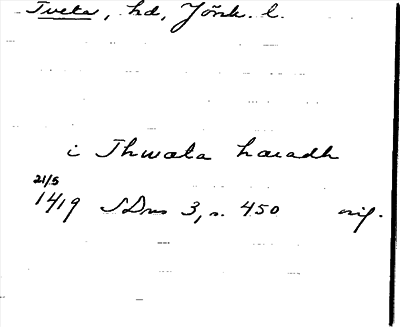 Tveta, hd, Jönk. l.
i Thwata haradh
21/5
1419 SDns 3, s. 450 orig.